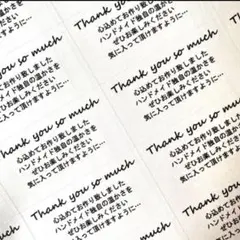 Thank you so much
心込めてお作り致しました
ハンドメイド独自の温かさを
ぜひお楽しみください
気に入って頂けますように…
Thank you so much
心込めてお作り致しました
ハンドメイド独自の温かさを
ぜひお楽しみください
気に入って頂けますように…
Thank you so much
心込めてお作り致しました
ハンドメイド独自の温かさを
ぜひお楽しみください
気に入って頂けますように…
Thank you so much
心込めてお作り致しました
ハンドメイド独自の温かさを
ぜひお楽しみください
気に入って頂けますように…
Thank you so much
心込めてお作り致しました
ハンドメイド独自の温かさを
ぜひお楽しみください
気に入って頂けますように…
Thank you so much